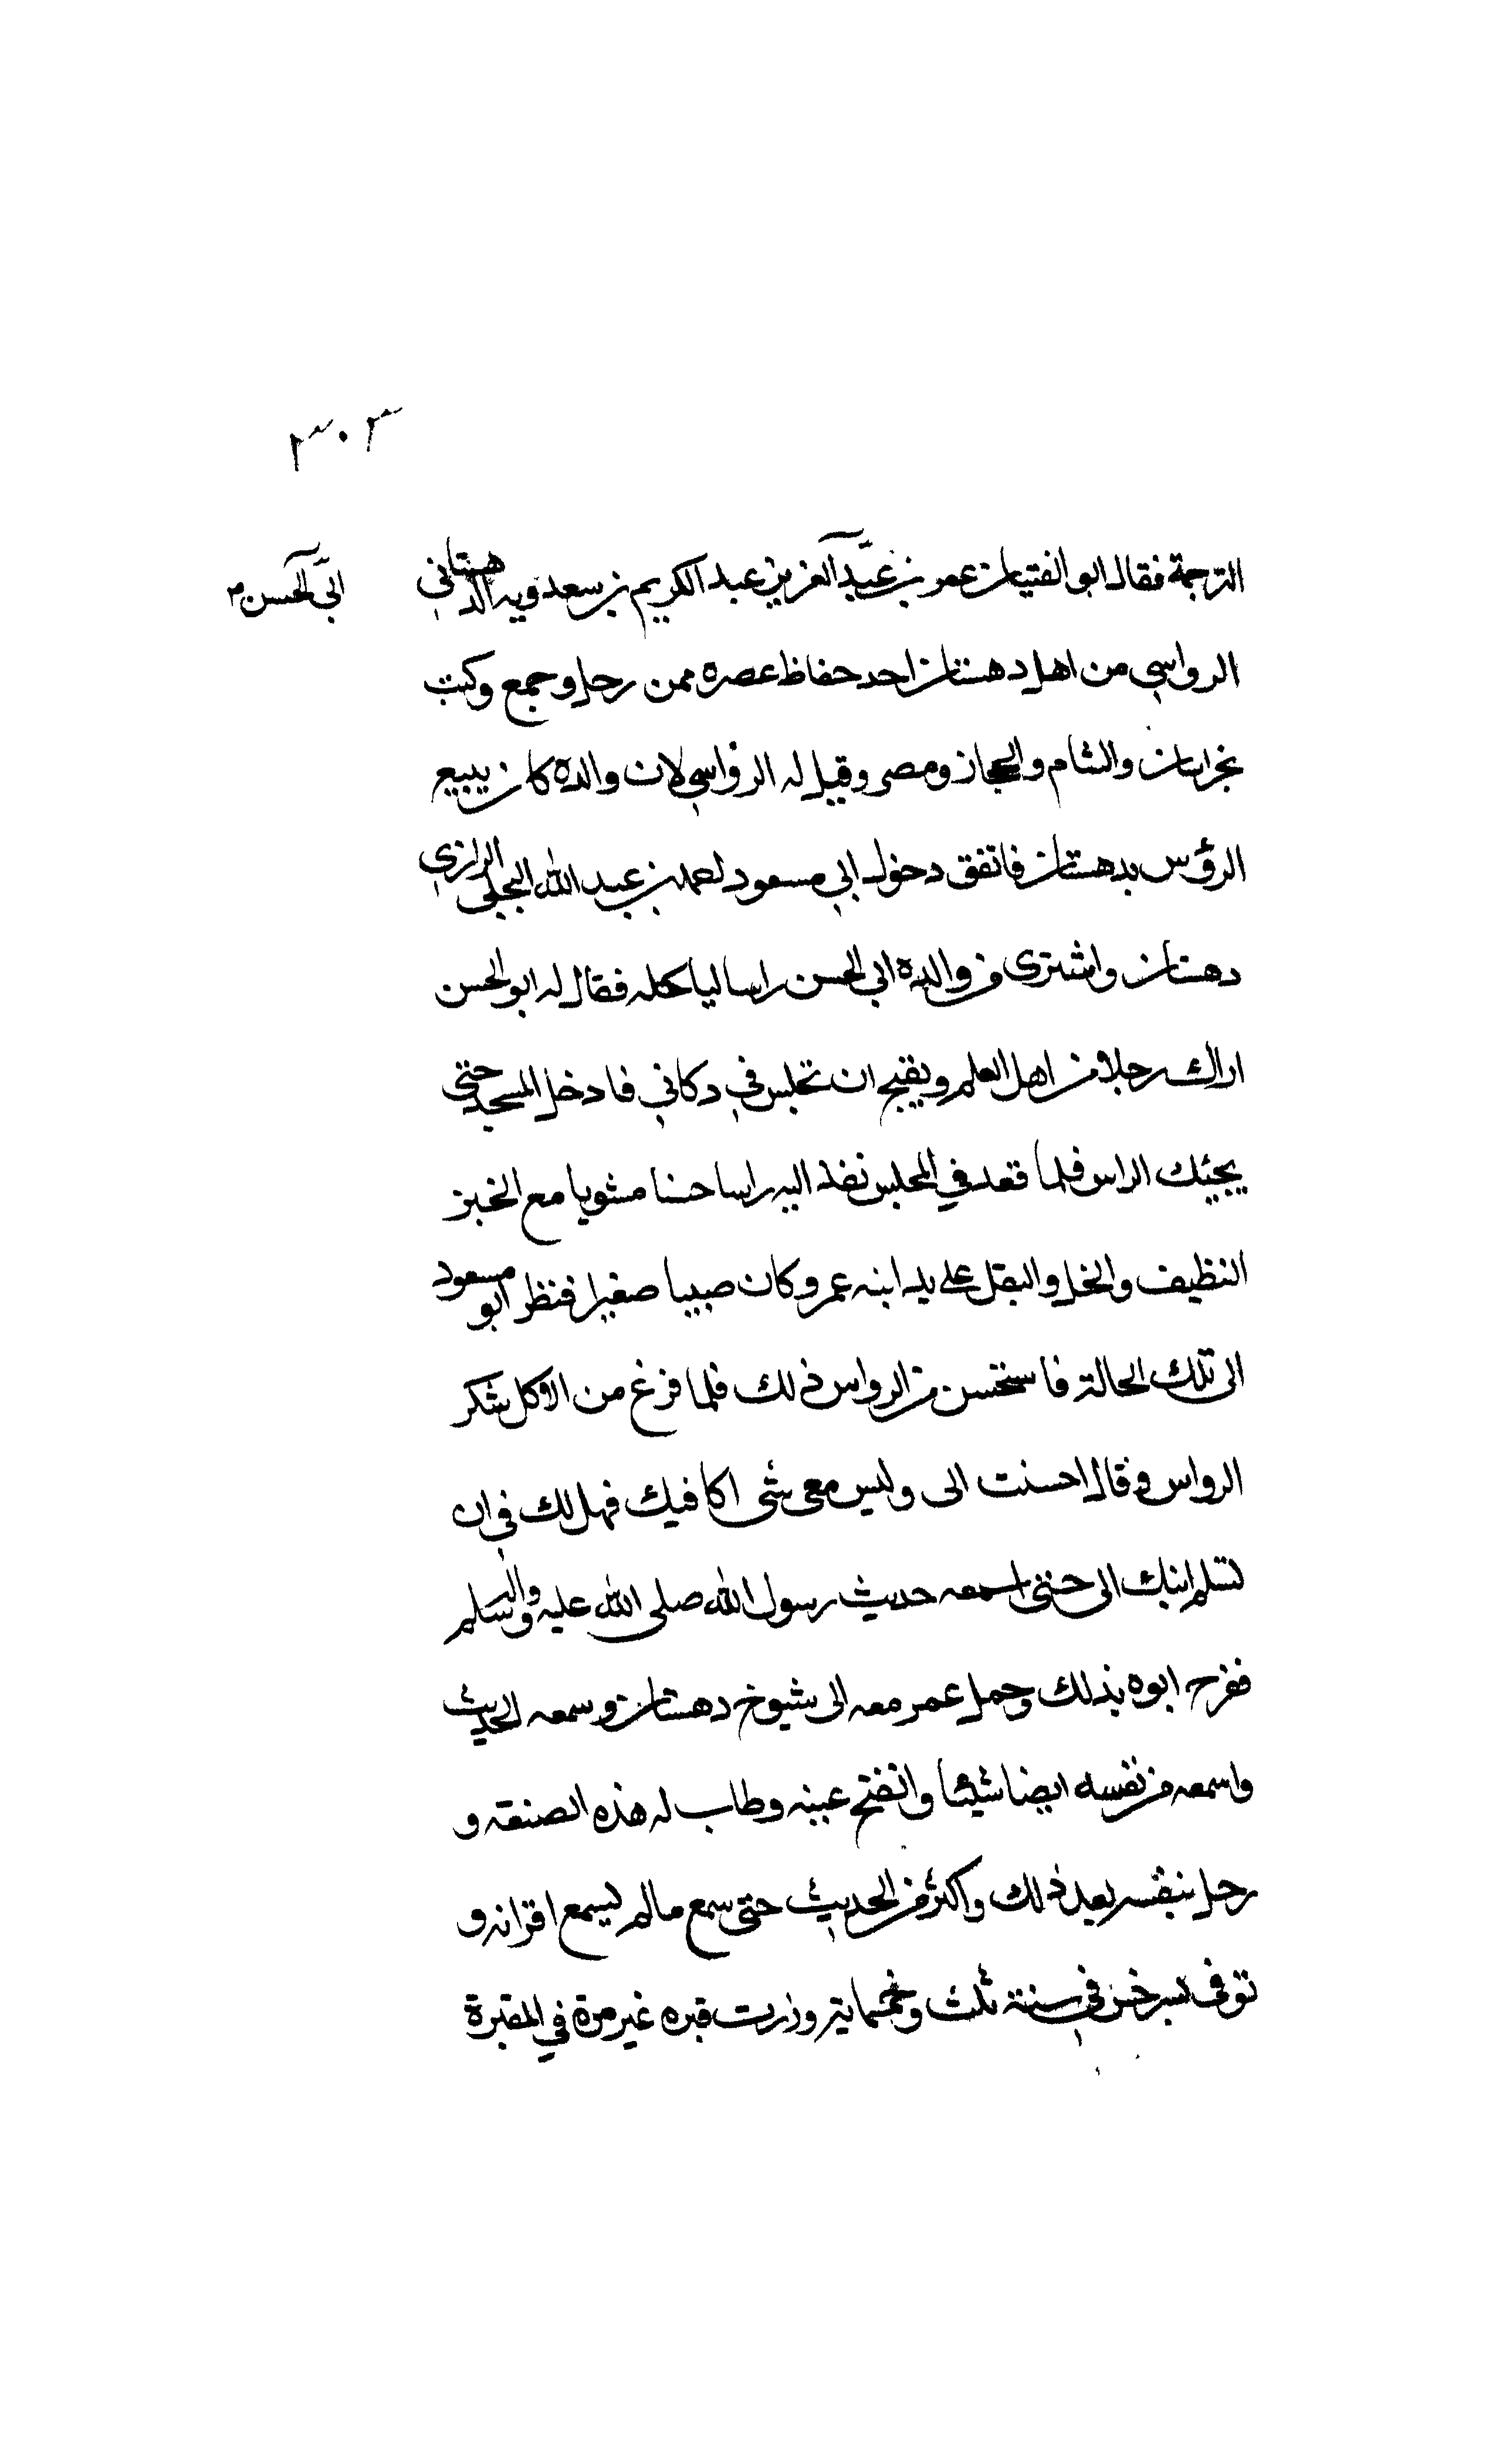 ٣٠٣
الترجمة فقال ابو الفتيان عمر بن عبد العزيز بن عبد الكريم بن سعدويه الدهستاني
ابى الحسن
الرواسي من اهل دهستان احد حفاظ عصره ممن رحل وجمع وكتب
بخراسان والشام والحجاز ومصر وقيل له الرواسي لان والده كان يبيع
الرؤس بدهستان فاتفق دخول ابي مسعود احمد بن عبد الله البجلي الرازي
دهستان واشترى من والده ابي الحسن راسا لياكله فقال له ابو الحسن
اراك رجلا من اهل العلم ويقبح ان تجلس في دكاني فادخل المسجد حتى
يجيئك الراس فلما قعد في المجلس نفذ اليه راسا حسنا مشويا مع الخبز
النظيف والخل والبقل على يد ابنه عمر وكان صبيا صغيرا فنظر ابو مسعود
الى تلك الحالة فاستحسن من الرواس ذلك فلما فرغ من الاكل شكر
الرواس وقال احسنت الى وليس معى شى اكافيك فهل لك في ان
تسلم ابنك الى حتى اسمعه حديث رسول الله صلى الله عليه واله وسلم
ففرح ابوه بذلك وحمل عمر معه الى شيوخ دهستان وسمعه الحديث
واسمعه من نفسه ايضا شيئا وانفتح عينه وطاب له هذه الصنعة و
رحل بنفسه بعد ذلك واكثر من الحديث حتى سمع مالم يسمع اقرانه و
توفى بسرخس في سنة ثلث وخمسماية وزرت قبره غير مرة في المقبرة